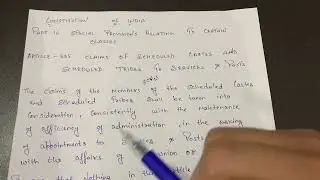 CONSTITUTION OF INDIA
PART 16 SPECIAL PROVISIONS RELATING TO CERTAIN
CLASSES
ARTICLE-335 CLAIMS OF SCHEDULED CASTES AND
SCHEDULED TRIBES TO SERVICES & POSTS
The claims of the members of the scheduled castes
and scheduled Tribes shall be taken into
consideration, consistently with the maintenance
of efficiency of administration, in the making
of appointments to & Posts
with the affairs of Union or
that nothing in